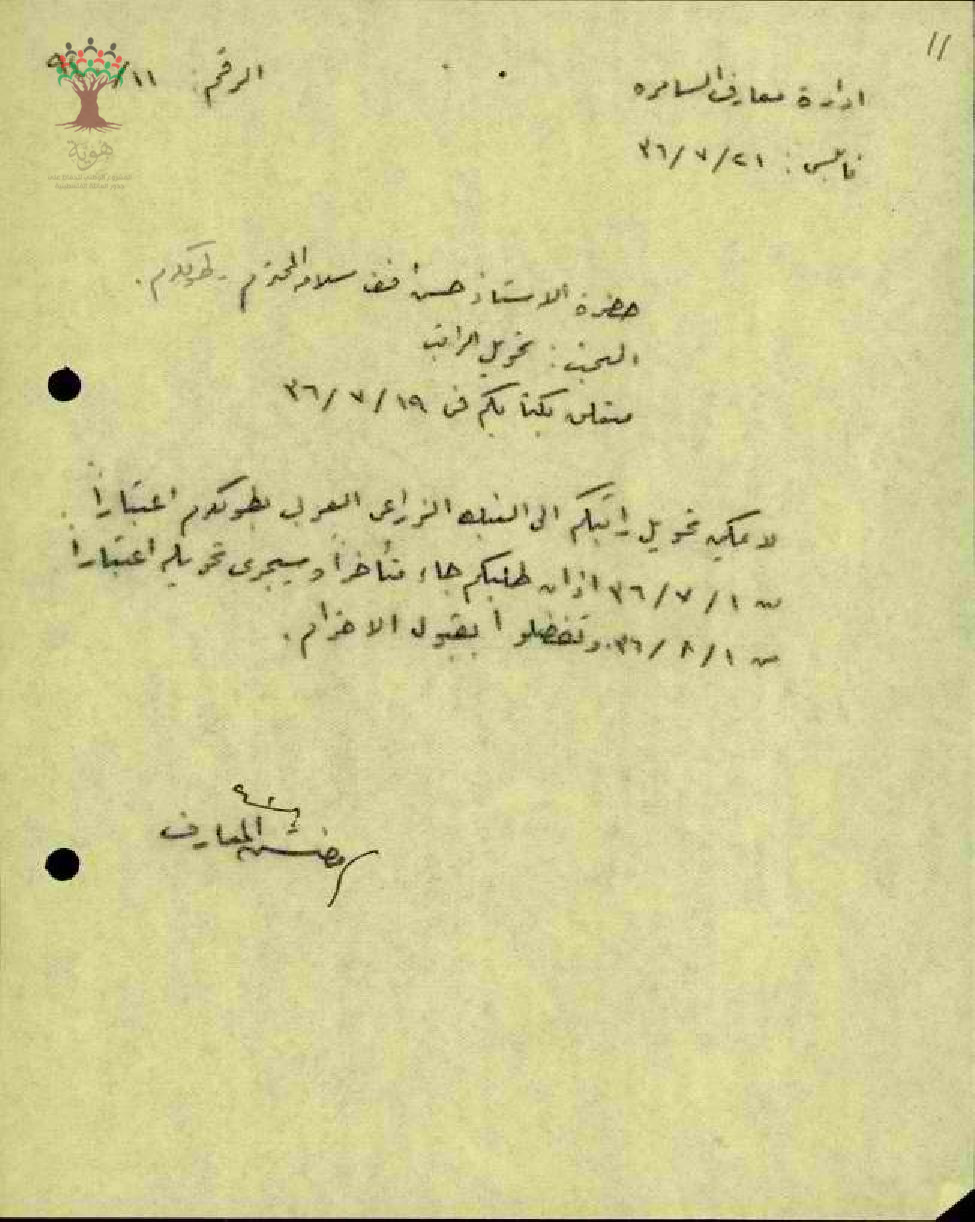 ١١
ادارة معارف السامره
الرقم: ١١/
نابلس: ٢١/٧/٣٦
هوية
حضرة الاستاذ حسن افندي سلامه المحترم - طولكرم.
البحث: تحويل الراتب
متعلق بكتابكم في ١٩/٧/٣٦
لا يمكن تحويل راتبكم الى البنك الزراعي العربي بطولكرم اعتباراً
من ١/٧/٣٦ اذ ان طلبكم جاء متأخراً وسيجري تحويله اعتباراً
من ١/٨/٣٦ وتفضلوا بقبول الاحترام.
مفتش المعارف